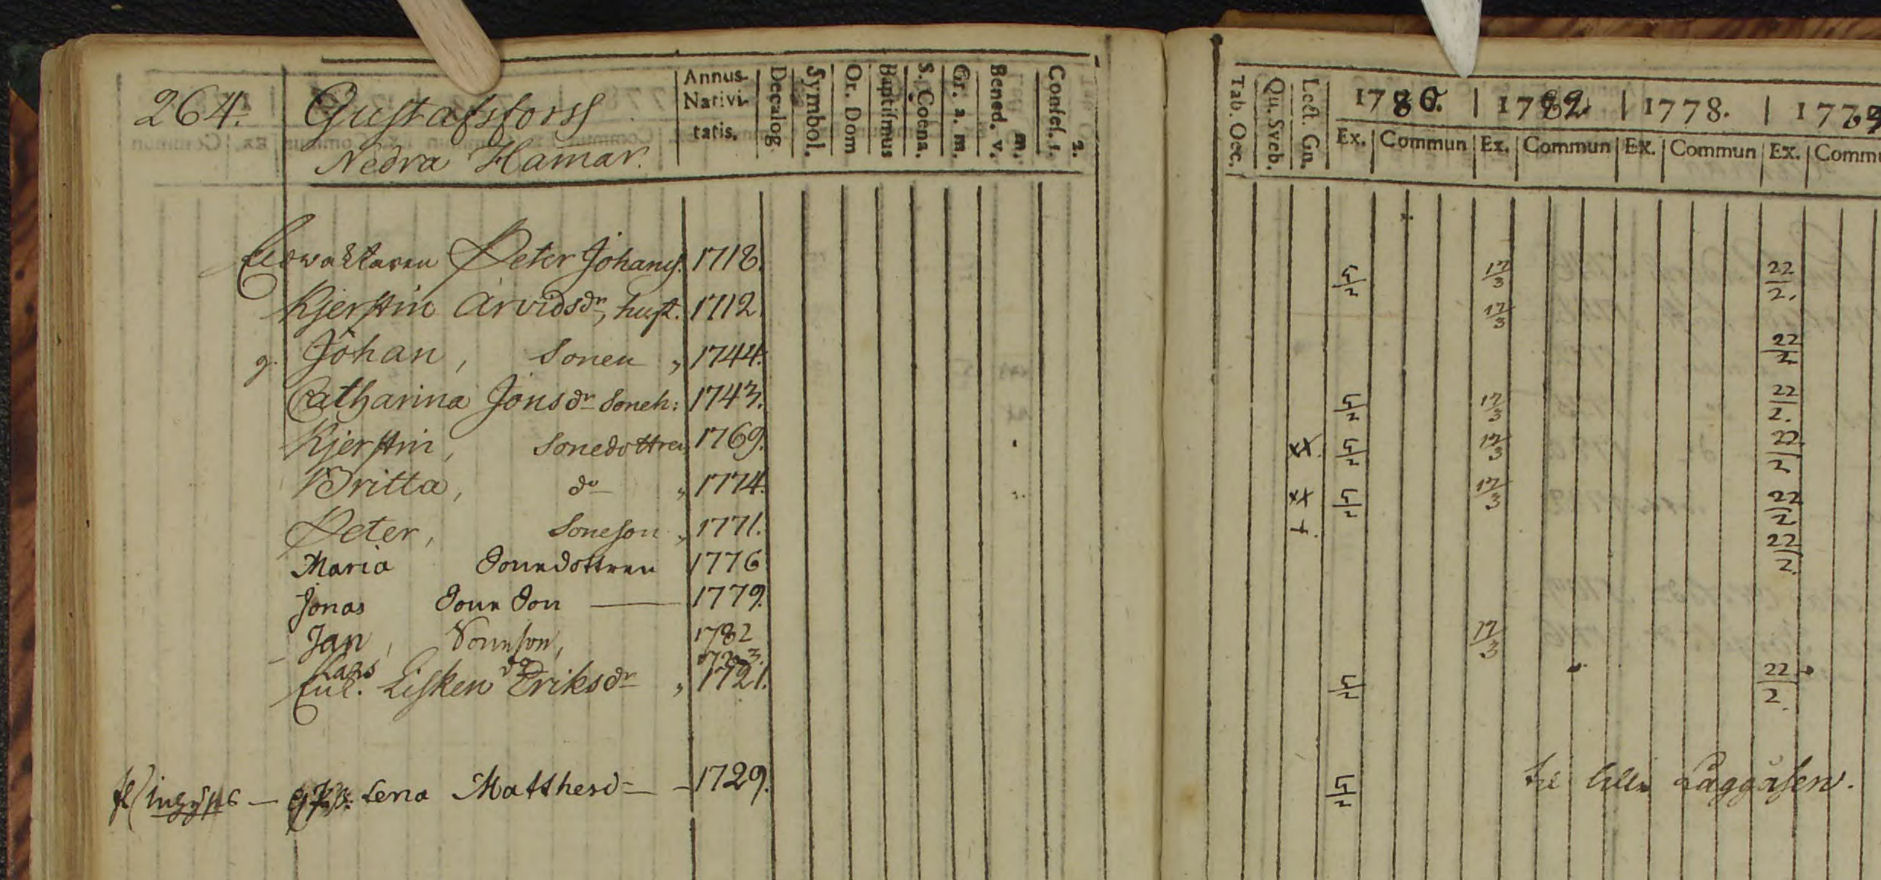 264. Gustafsforss
Nedra Hamar.
Annus Nativitatis. Decalog. Symbol. Or. Dom Baptismus S. Coena. Gr. a. m. Bened. v. m. Confes. 1. 2.
Tab. Oec. Qu. Sveb. Lect. Gn. 1780. 1782. 1778. 1773
Ex. Commun Ex. Commun Ex. Commun Ex. Commu
Peter Johans. 1718. 5/2 17/3 22/2.
Kjerstin Arvidsdr, hust. 1712. 17/3
g. Johan, Sonen " 1744. 22/2
Catharina Jonsdr Soneh: 1743. 5/2 17/3 22/2.
Kjerstin, Sonedottren 1769. xx. 5/2 17/3 22/2
Britta, do " 1774. xx 5/2 17/3 22/2
Peter, Soneson " 1771. +. 22/2.
Maria Sonedottren 1776
Jonas Soneson — 1779.
Jan, Soneson, 1782 17/3
Lars do
Enk. Lisken Eriksdr " 1721. 5/2 22/2.
Lena Matthesd — 1729. 5/2 til lilla Laggåsen.